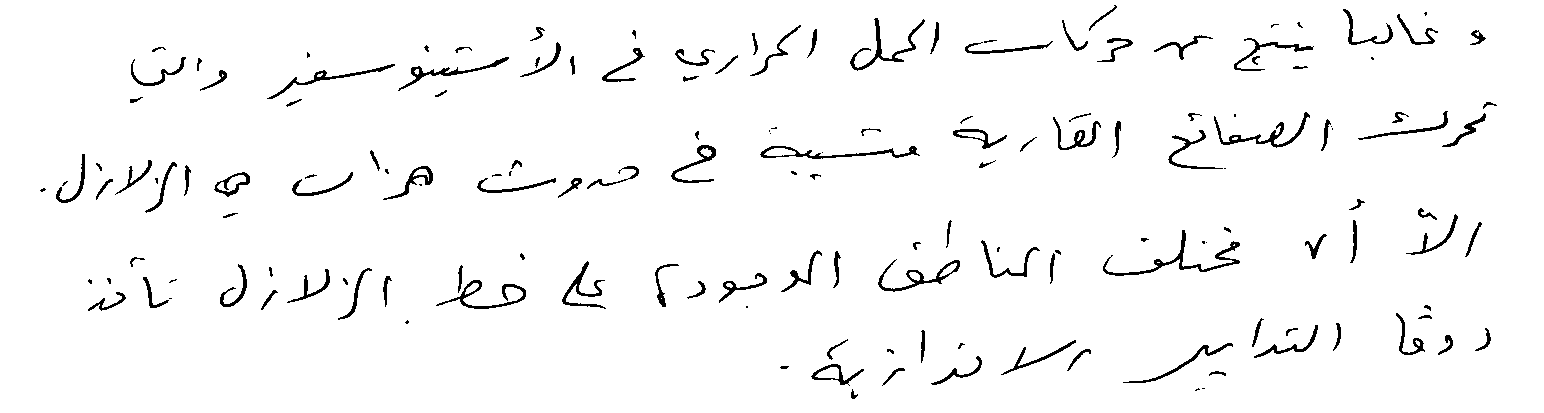 وغالبا ينتج عن حركات الحمل الحراري في الأستينوسفير والتي
تحرك الصفائح القارية متسببة في حدوث هزات هي الزلازل.
الاّ أن مختلف المناطق الموجودة على خط الزلازل تأخذ
دوما التدابير الاحترازية.